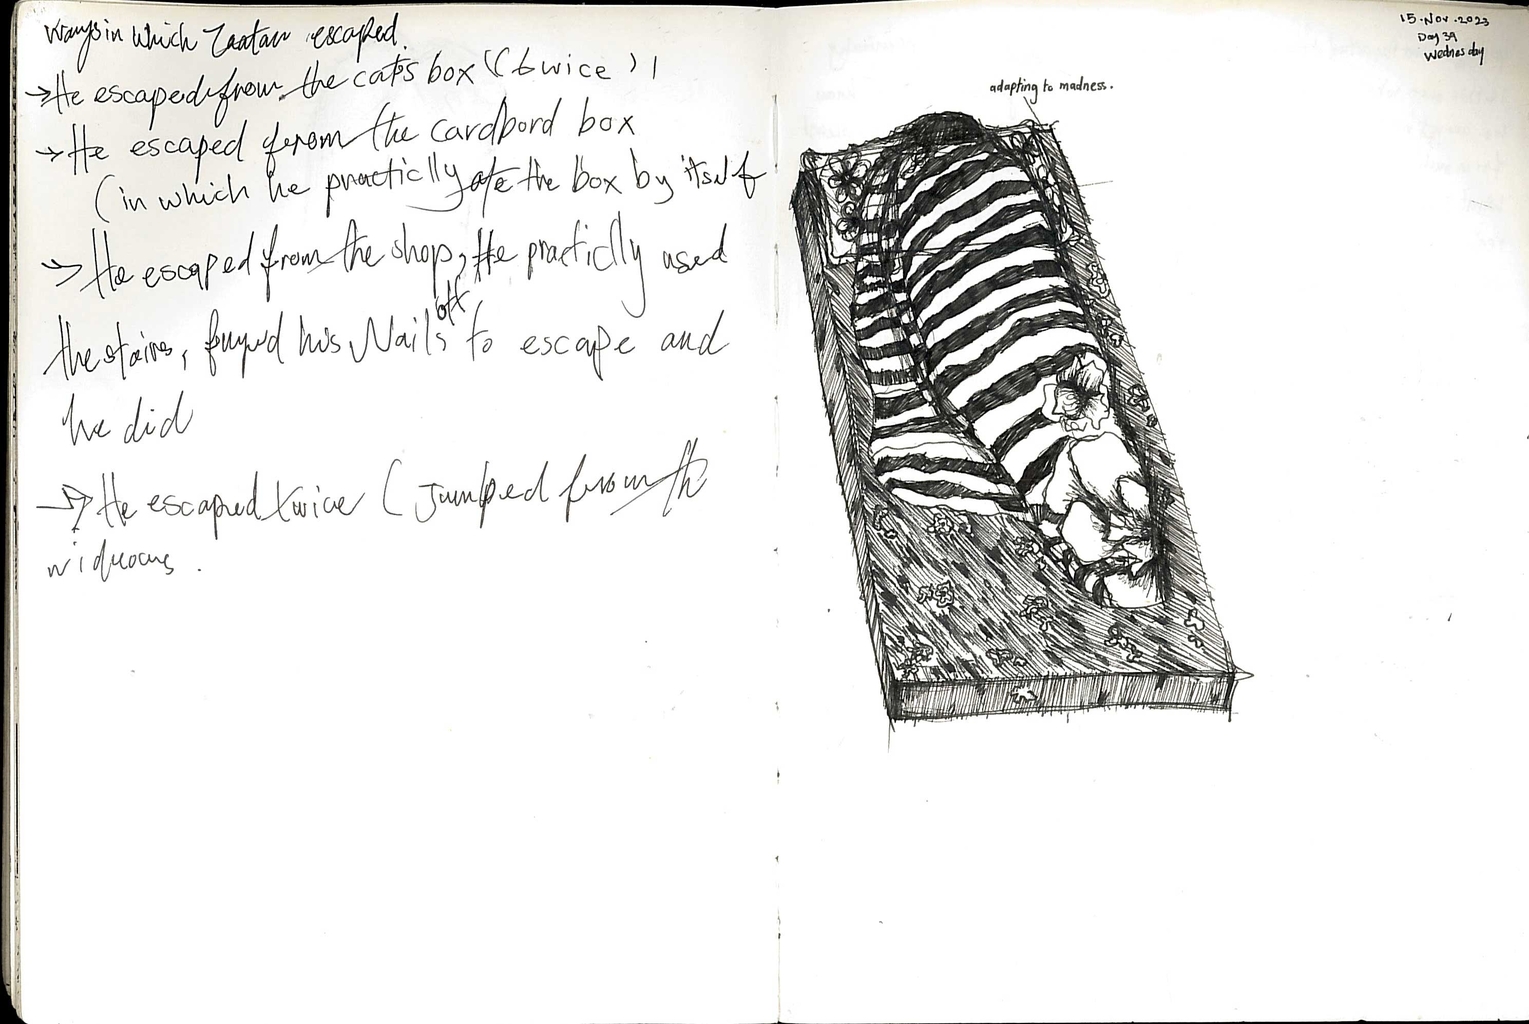 ways in which Zaatar escaped.
→ He escaped from the cat's box (twice) !
→ He escaped from the cardbord box
(in which he practiclly ate the box by itself
→ He escaped from the shop, He practiclly used
the stairs, his Nails off to escape and
he did
→ He escaped twice (Jumped from th
15.Nov.2023
Day 39
Wednesday
adapting to madness.